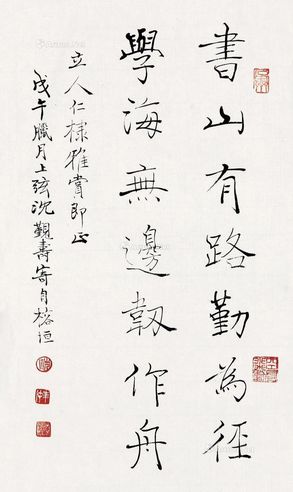 書山有路勤為徑
學海無邊韌作舟
立人仁棣雅賞即正
戊午臘月上弦沈覲壽寄自榕垣